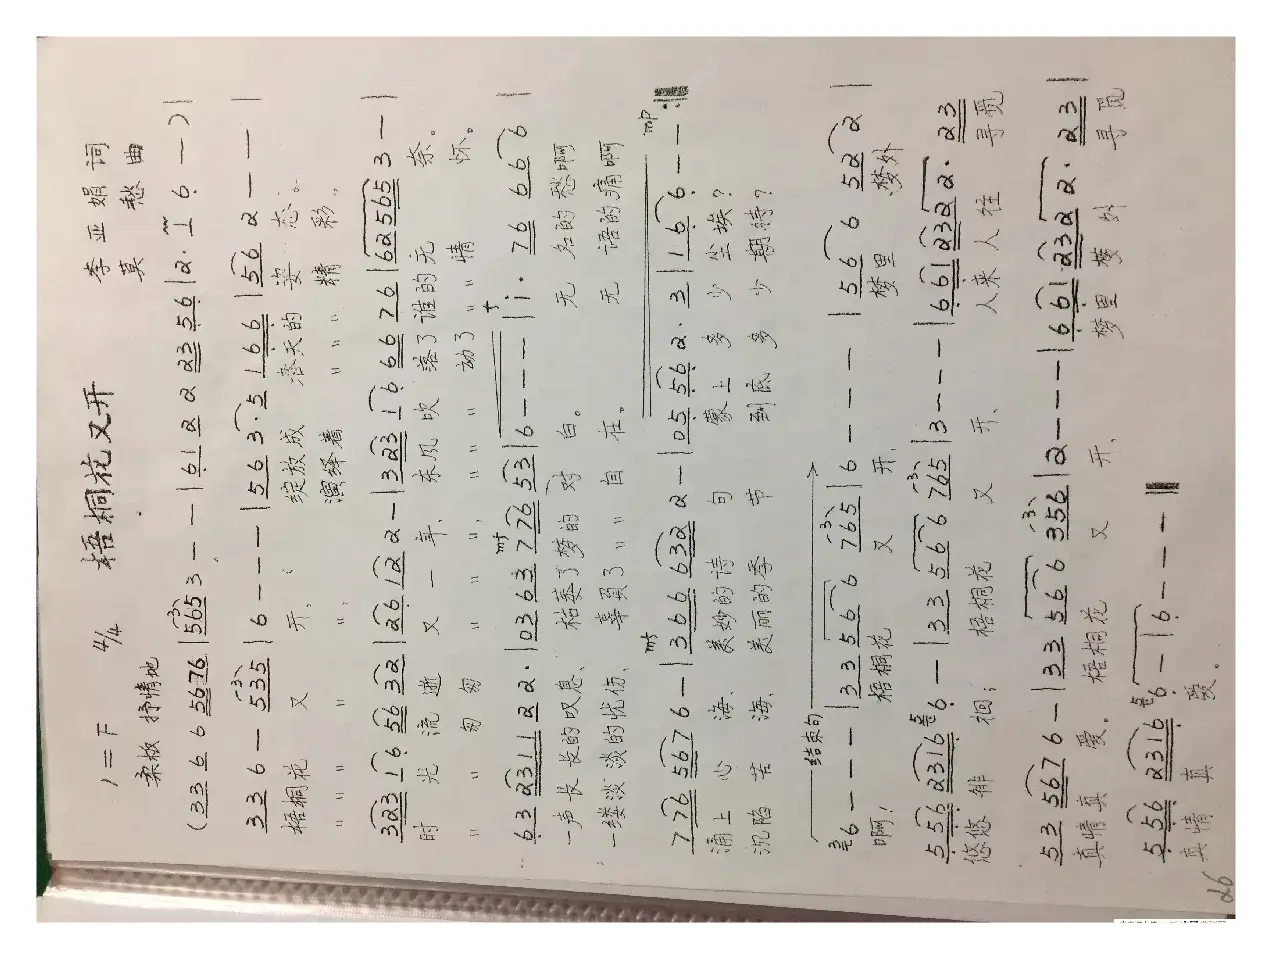 梧桐花又开
1=F 4/4 李亚娟 词
柔板 抒情地 莫愁 曲
(3 3 6 6 5676 | 565 3 - - | 6 1 2 2 23 56 | 2· 1 6 - ) |
3 3 6 - 535 | 6 - - - | 5 6 3· 5 1 6 6 | 5 6 2 - - |
梧桐花 又 开, 绽放成 漆天的 姿 态。
〃 〃 〃 〃 〃, 演绎着 〃 〃 精 彩,
323 1 6 56 32 | 2 6 1 2 2 - | 323 1 6 66 76 | 62565 3 - |
时 光 流 逝 又 一 年, 东风 吹 落了 谁的 无 奈。
〃 〃 匆 匆 〃 〃 〃, 〃 〃 〃 动了 〃 〃 情 怀。
6 3 2311 2 2· | 03 63 7 76 53 | 6 - - - | i· 76 66 6 |
一声长长的叹息、 枯萎了梦的 对 白。 无 名的愁啊
一缕淡淡的忧伤, 辜负了 〃 自 在。 无 语的痛啊
7 776 567 6 - | 3 6 6 6 632 2 - | 05 56 2· 3 | 1 6 6 - - :|
涌上 心 海, 美妙的诗 句 蒙上 多 少 尘埃?
沉陷 苦 海, 美丽的季 节 到底 多 少 期待?
结束句
6 - - - | 3 3 56 6 765 | 6 - - - | 5 6 6 52 2 |
啊! 梧桐花 又 开, 梦里 梦外
5 56 2316 6 - | 3 3 56 6 765 | 3 - - - | 6 61 232 2· 23 |
悠悠 徘 徊; 梧桐花 又 开, 人来人 往 寻觅
53 567 6 - | 3 3 56 6 356 | 2 - - - | 6 61·232 2· 23 |
真情真 爱。 梧桐花 又 开, 梦里 梦 外 寻觅
5 56 2316 6 - | 6 - - - ‖
真情 真 爱。
26